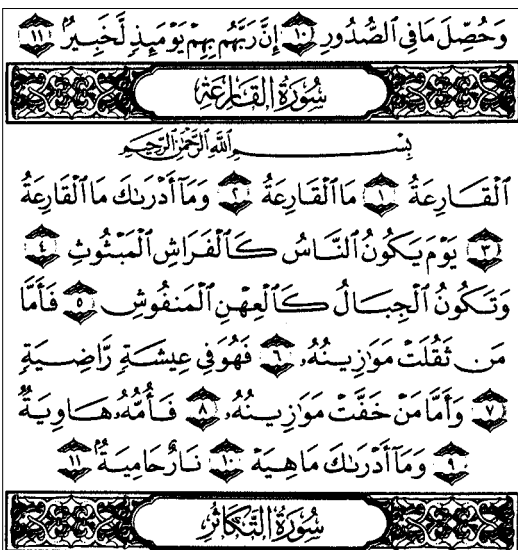 وَحُصِّلَ مَا فِي ٱلصُّدُورِ ١٠ إِنَّ رَبَّهُم بِهِمْ يَوْمَئِذٍ لَّخَبِيرٌۢ ١١
سُورَةُ القَارِعَةِ
بِسْمِ ٱللَّهِ ٱلرَّحْمَٰنِ ٱلرَّحِيمِ
ٱلْقَارِعَةُ ١ مَا ٱلْقَارِعَةُ ٢ وَمَآ أَدْرَىٰكَ مَا ٱلْقَارِعَةُ
٣ يَوْمَ يَكُونُ ٱلنَّاسُ كَٱلْفَرَاشِ ٱلْمَبْثُوثِ ٤
وَتَكُونُ ٱلْجِبَالُ كَٱلْعِهْنِ ٱلْمَنفُوشِ ٥ فَأَمَّا
مَن ثَقُلَتْ مَوَٰزِينُهُۥ ٦ فَهُوَ فِي عِيشَةٍ رَّاضِيَةٍ
٧ وَأَمَّا مَنْ خَفَّتْ مَوَٰزِينُهُۥ ٨ فَأُمُّهُۥ هَاوِيَةٌ
٩ وَمَآ أَدْرَىٰكَ مَا هِيَهْ ١٠ نَارٌ حَامِيَةٌۢ ١١
سُورَةُ التَّكَاثُرِ